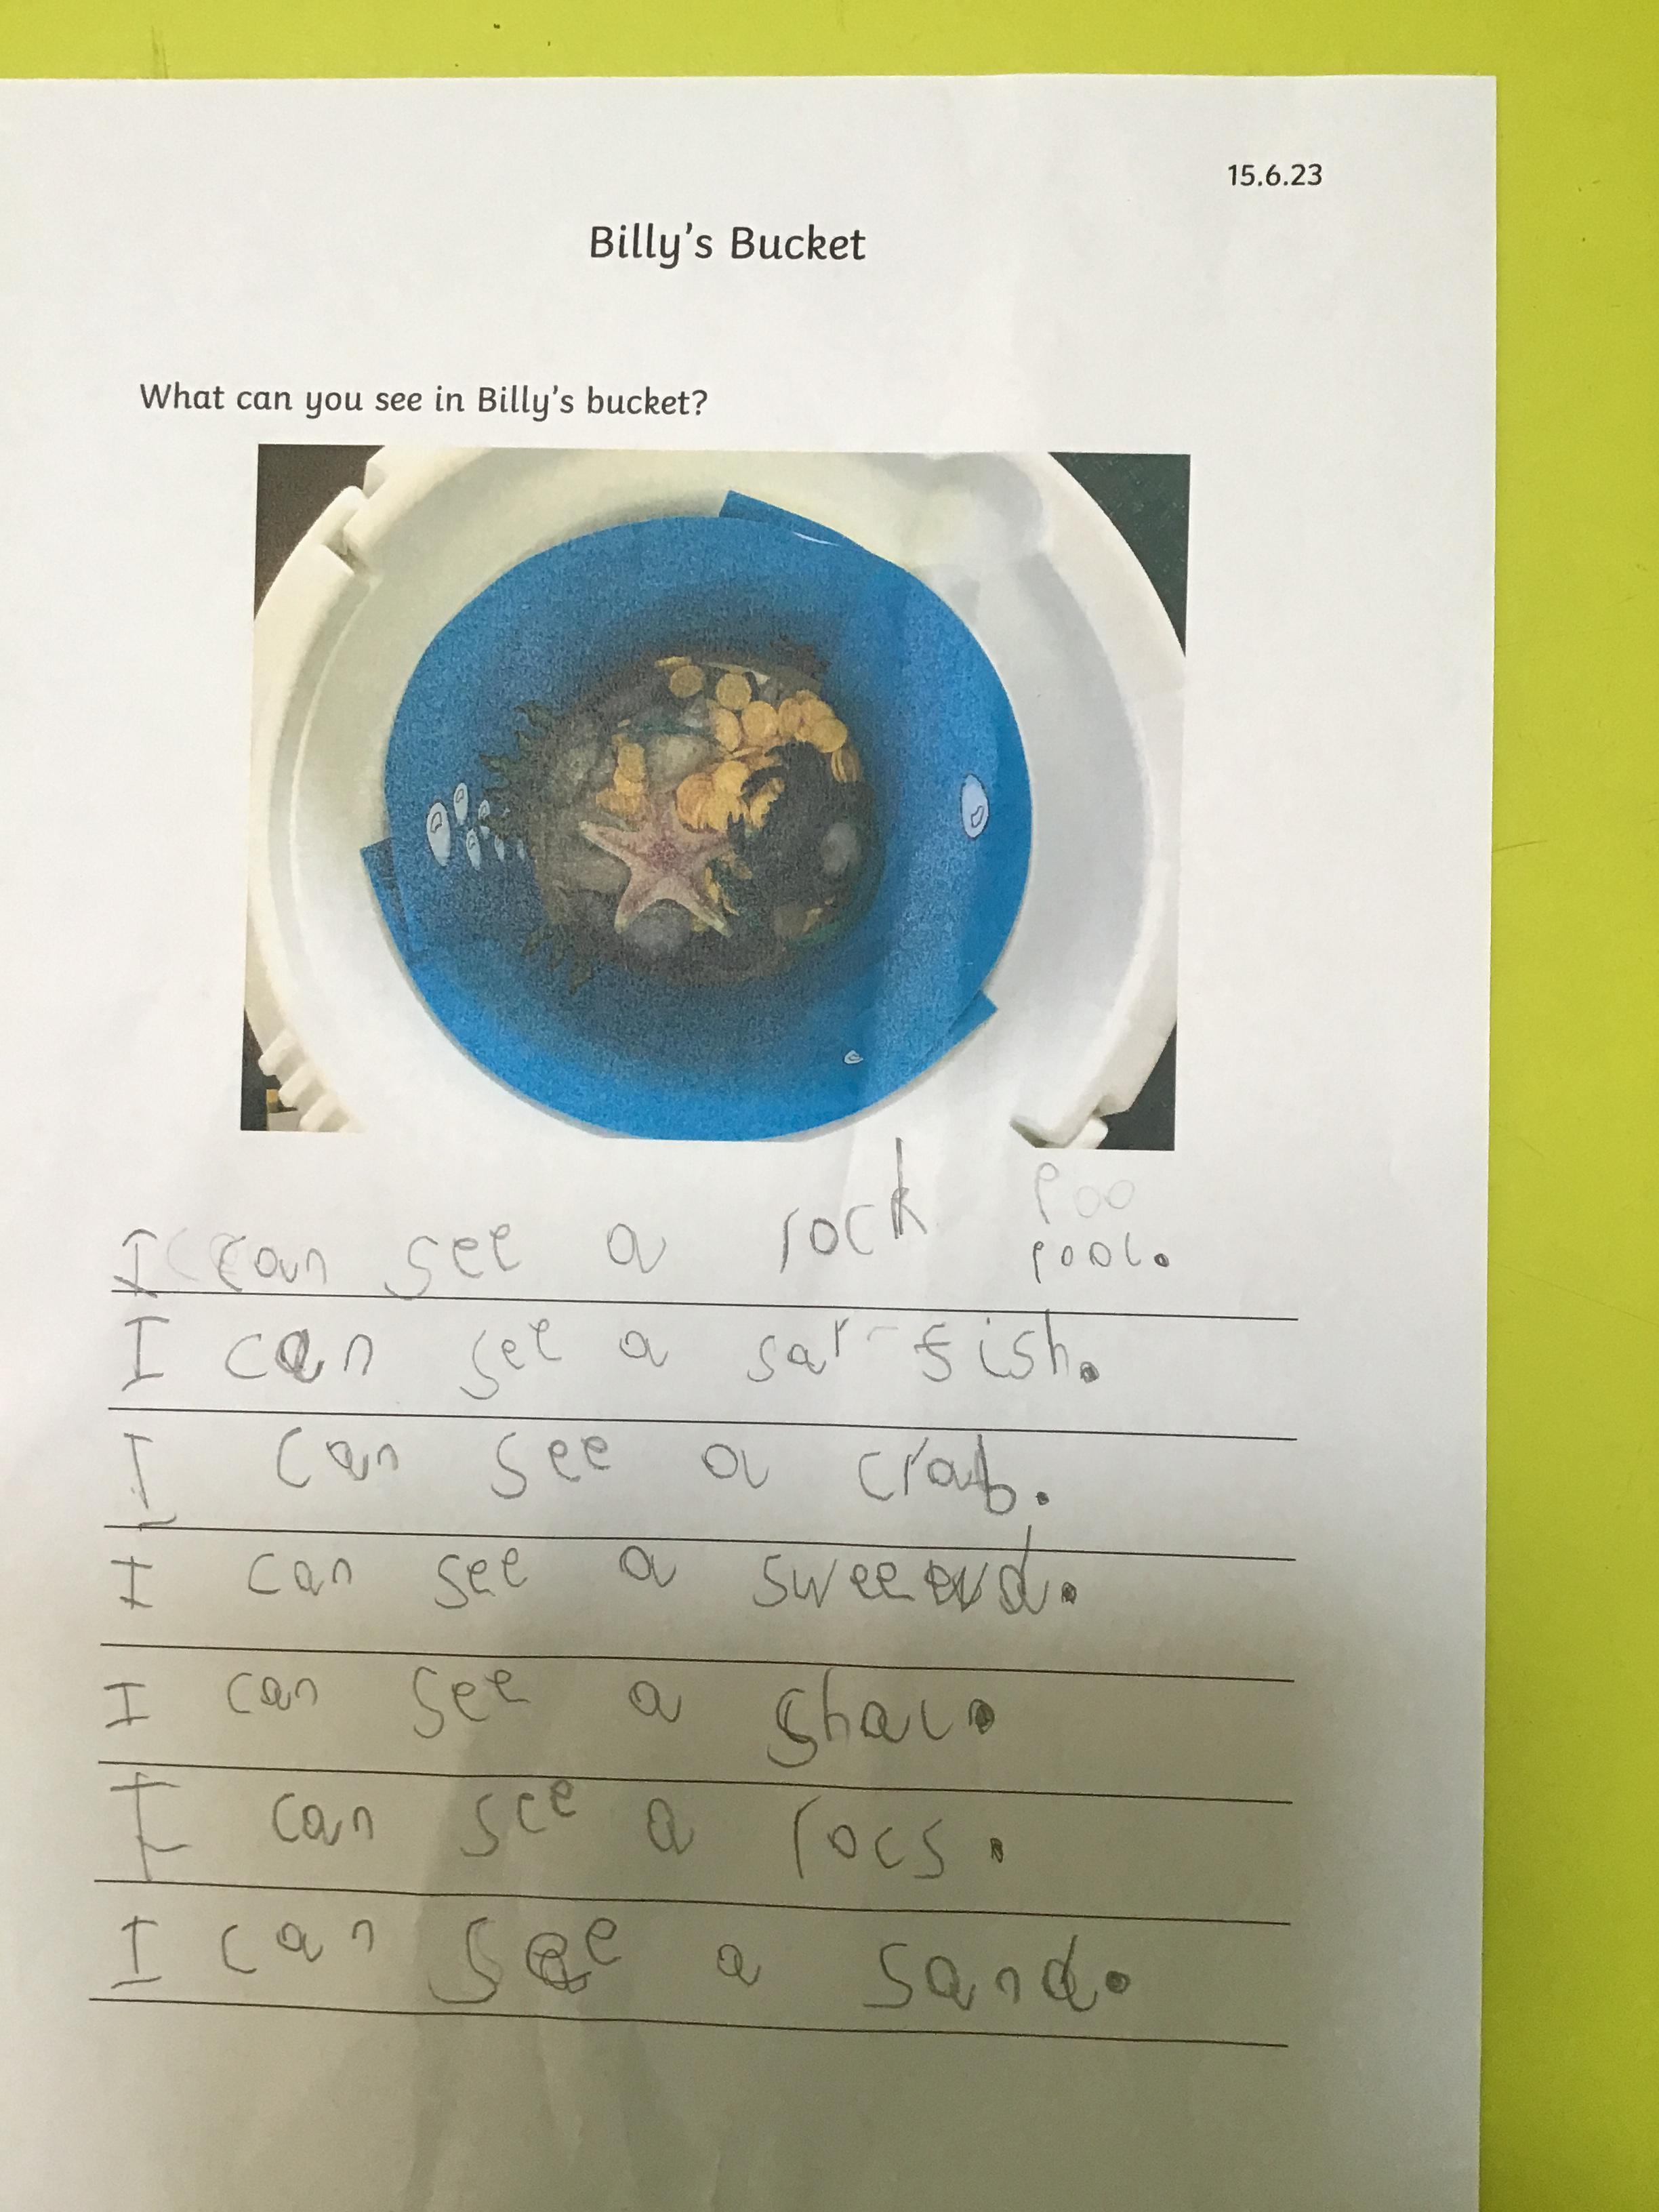 15.6.23
Billy's Bucket
What can you see in Billy's bucket?
poo
I can see a rock pool.
I can see a sar-fish.
I can see a crab.
I can see a sweeevd.
I can see a shal.
I can see a rocs.
I can see a sand.